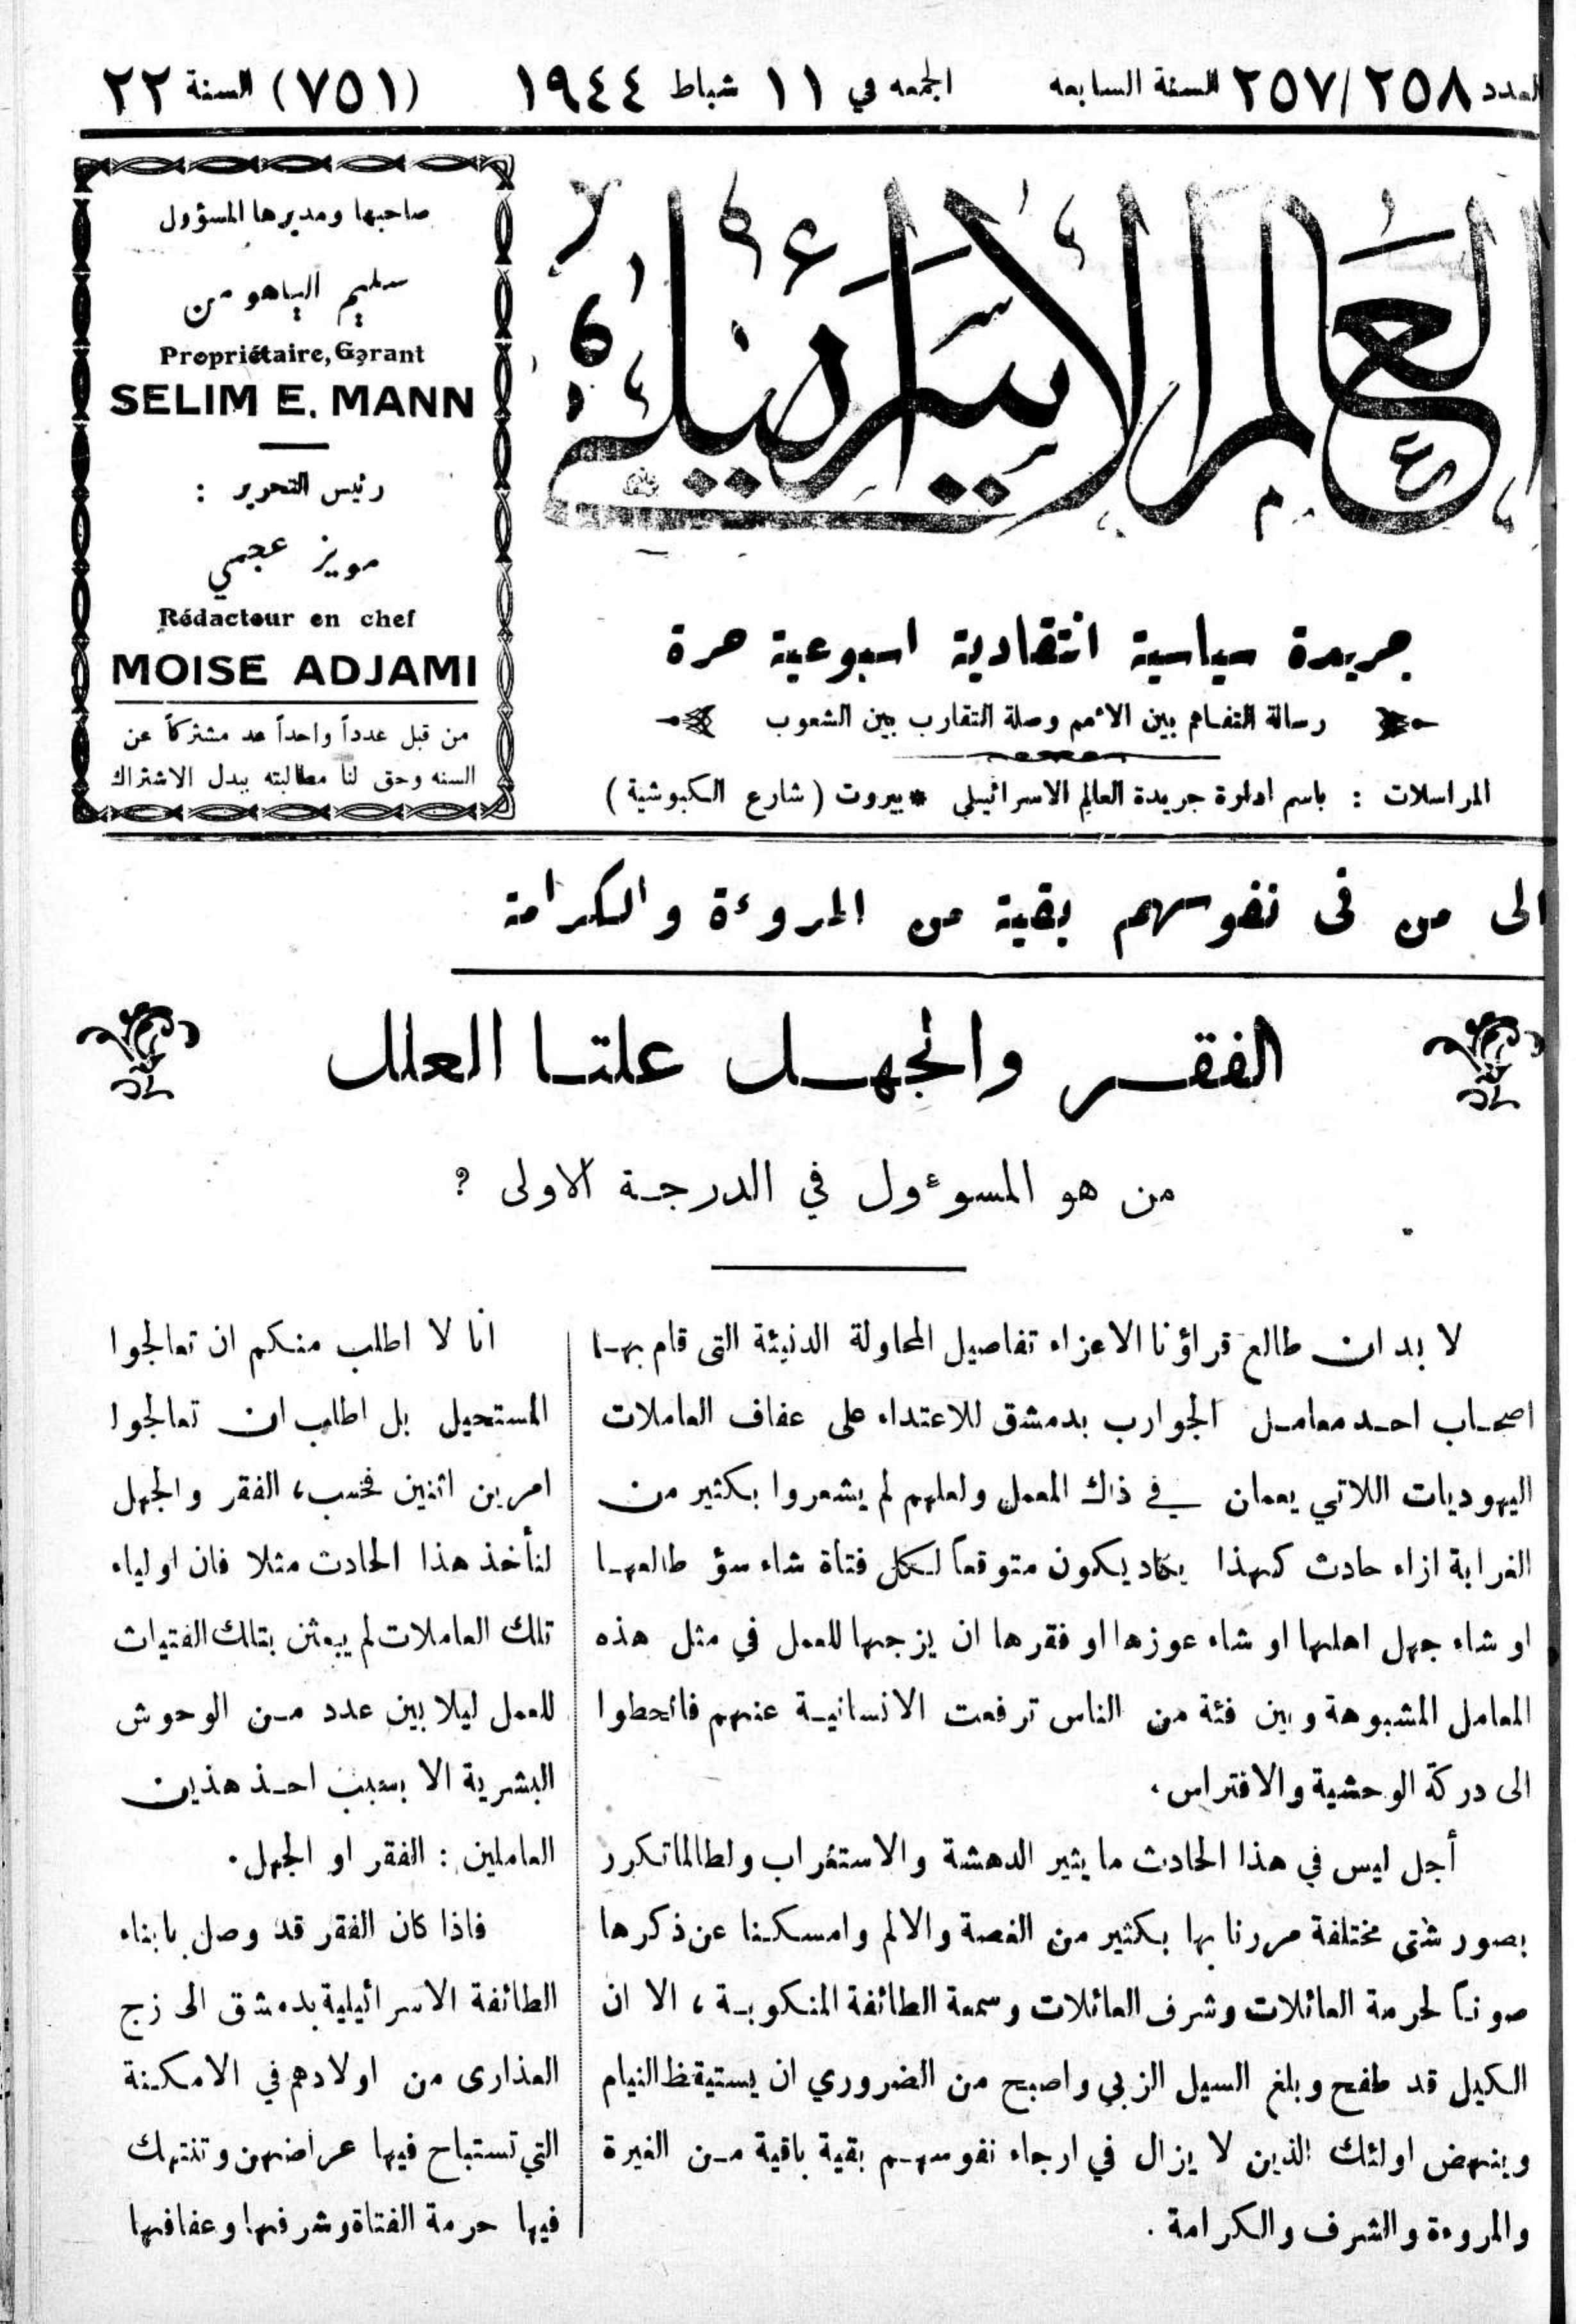 العدد ٢٥٧/٢٥٨ السنة السابعه الجمعه في ١١ شباط ١٩٤٤ (٧٥١) السنة ٢٢
العالم الاسرائيلي
جريدة سياسية انتقادية اسبوعية حرة
رسالة التفاهم بين الأمم وصلة التقارب بين الشعوب
المراسلات : باسم ادارة جريدة العالم الاسرائيلي * بيروت ( شارع الكبوشية )
صاحبها ومديرها المسؤول
سليم الياهو من
Propriétaire, Gérant
SELIM E. MANN
رئيس التحرير :
مويز عجمي
Rédacteur en chef
MOISE ADJAMI
من قبل عدداً واحداً عد مشتركاً عن
السنه وحق لنا مطالبته ببدل الاشتراك
الى من فى نفوسهم بقية من المروءة والكرامة
الفقر والجهل علتا العلل
من هو المسوءول في الدرجة الاولى ?
لا بد ان طالع قراؤنا الاعزاء تفاصيل المحاولة الدنيئة التى قام بها
اصحاب احد معامل الجوارب بدمشق للاعتداء على عفاف العاملات
اليهوديات اللاتي يعملن في ذاك المعمل ولعلهم لم يشعروا بكثير من
الغرابة ازاء حادث كهذا يكاد يكون متوقعاً لكل فتاة شاء سؤ طالعها
او شاء جهل اهلها او شاء عوزها او فقرها ان يزجها للعمل في مثل هذه
المعامل المشبوهة وبين فئة من الناس ترفعت الانسانية عنهم فانحطوا
الى دركة الوحشية والافتراس،
أجل ليس في هذا الحادث ما يثير الدهشة والاستغراب ولطالما تكرر
بصور شتى مختلفة مررنا بها بكثير من الغصة والالم وامسكنا عن ذكرها
صوناً لحرمة العائلات وشرف العائلات وسمعة الطائفة المنكوبة ، الا ان
الكيل قد طفح وبلغ السيل الزبي واصبح من الضروري ان يستيقظ النيام
وينهض اولئك الذين لا يزال في ارجاء نفوسهم بقية باقية من الغيرة
والمروءة والشرف والكرامة .
انا لا اطلب منكم ان تعالجوا
المستحيل بل اطلب ان تعالجوا
امرين اثنين فحسب، الفقر والجهل
لنأخذ هذا الحادث مثلا فان اولياء
تلك العاملات لم يبعثن بتلك الفتيات
للعمل ليلا بين عدد من الوحوش
البشرية الا بسبب احد هذين
العاملين : الفقر او الجهل.
فاذا كان الفقر قد وصل بابناء
الطائفة الاسرائيلية بدمشق الى زج
العذارى من اولادهم في الامكنة
التي تستباح فيها عراضهن وتنتهك
فيها حرمة الفتاة وشرفها وعفافها